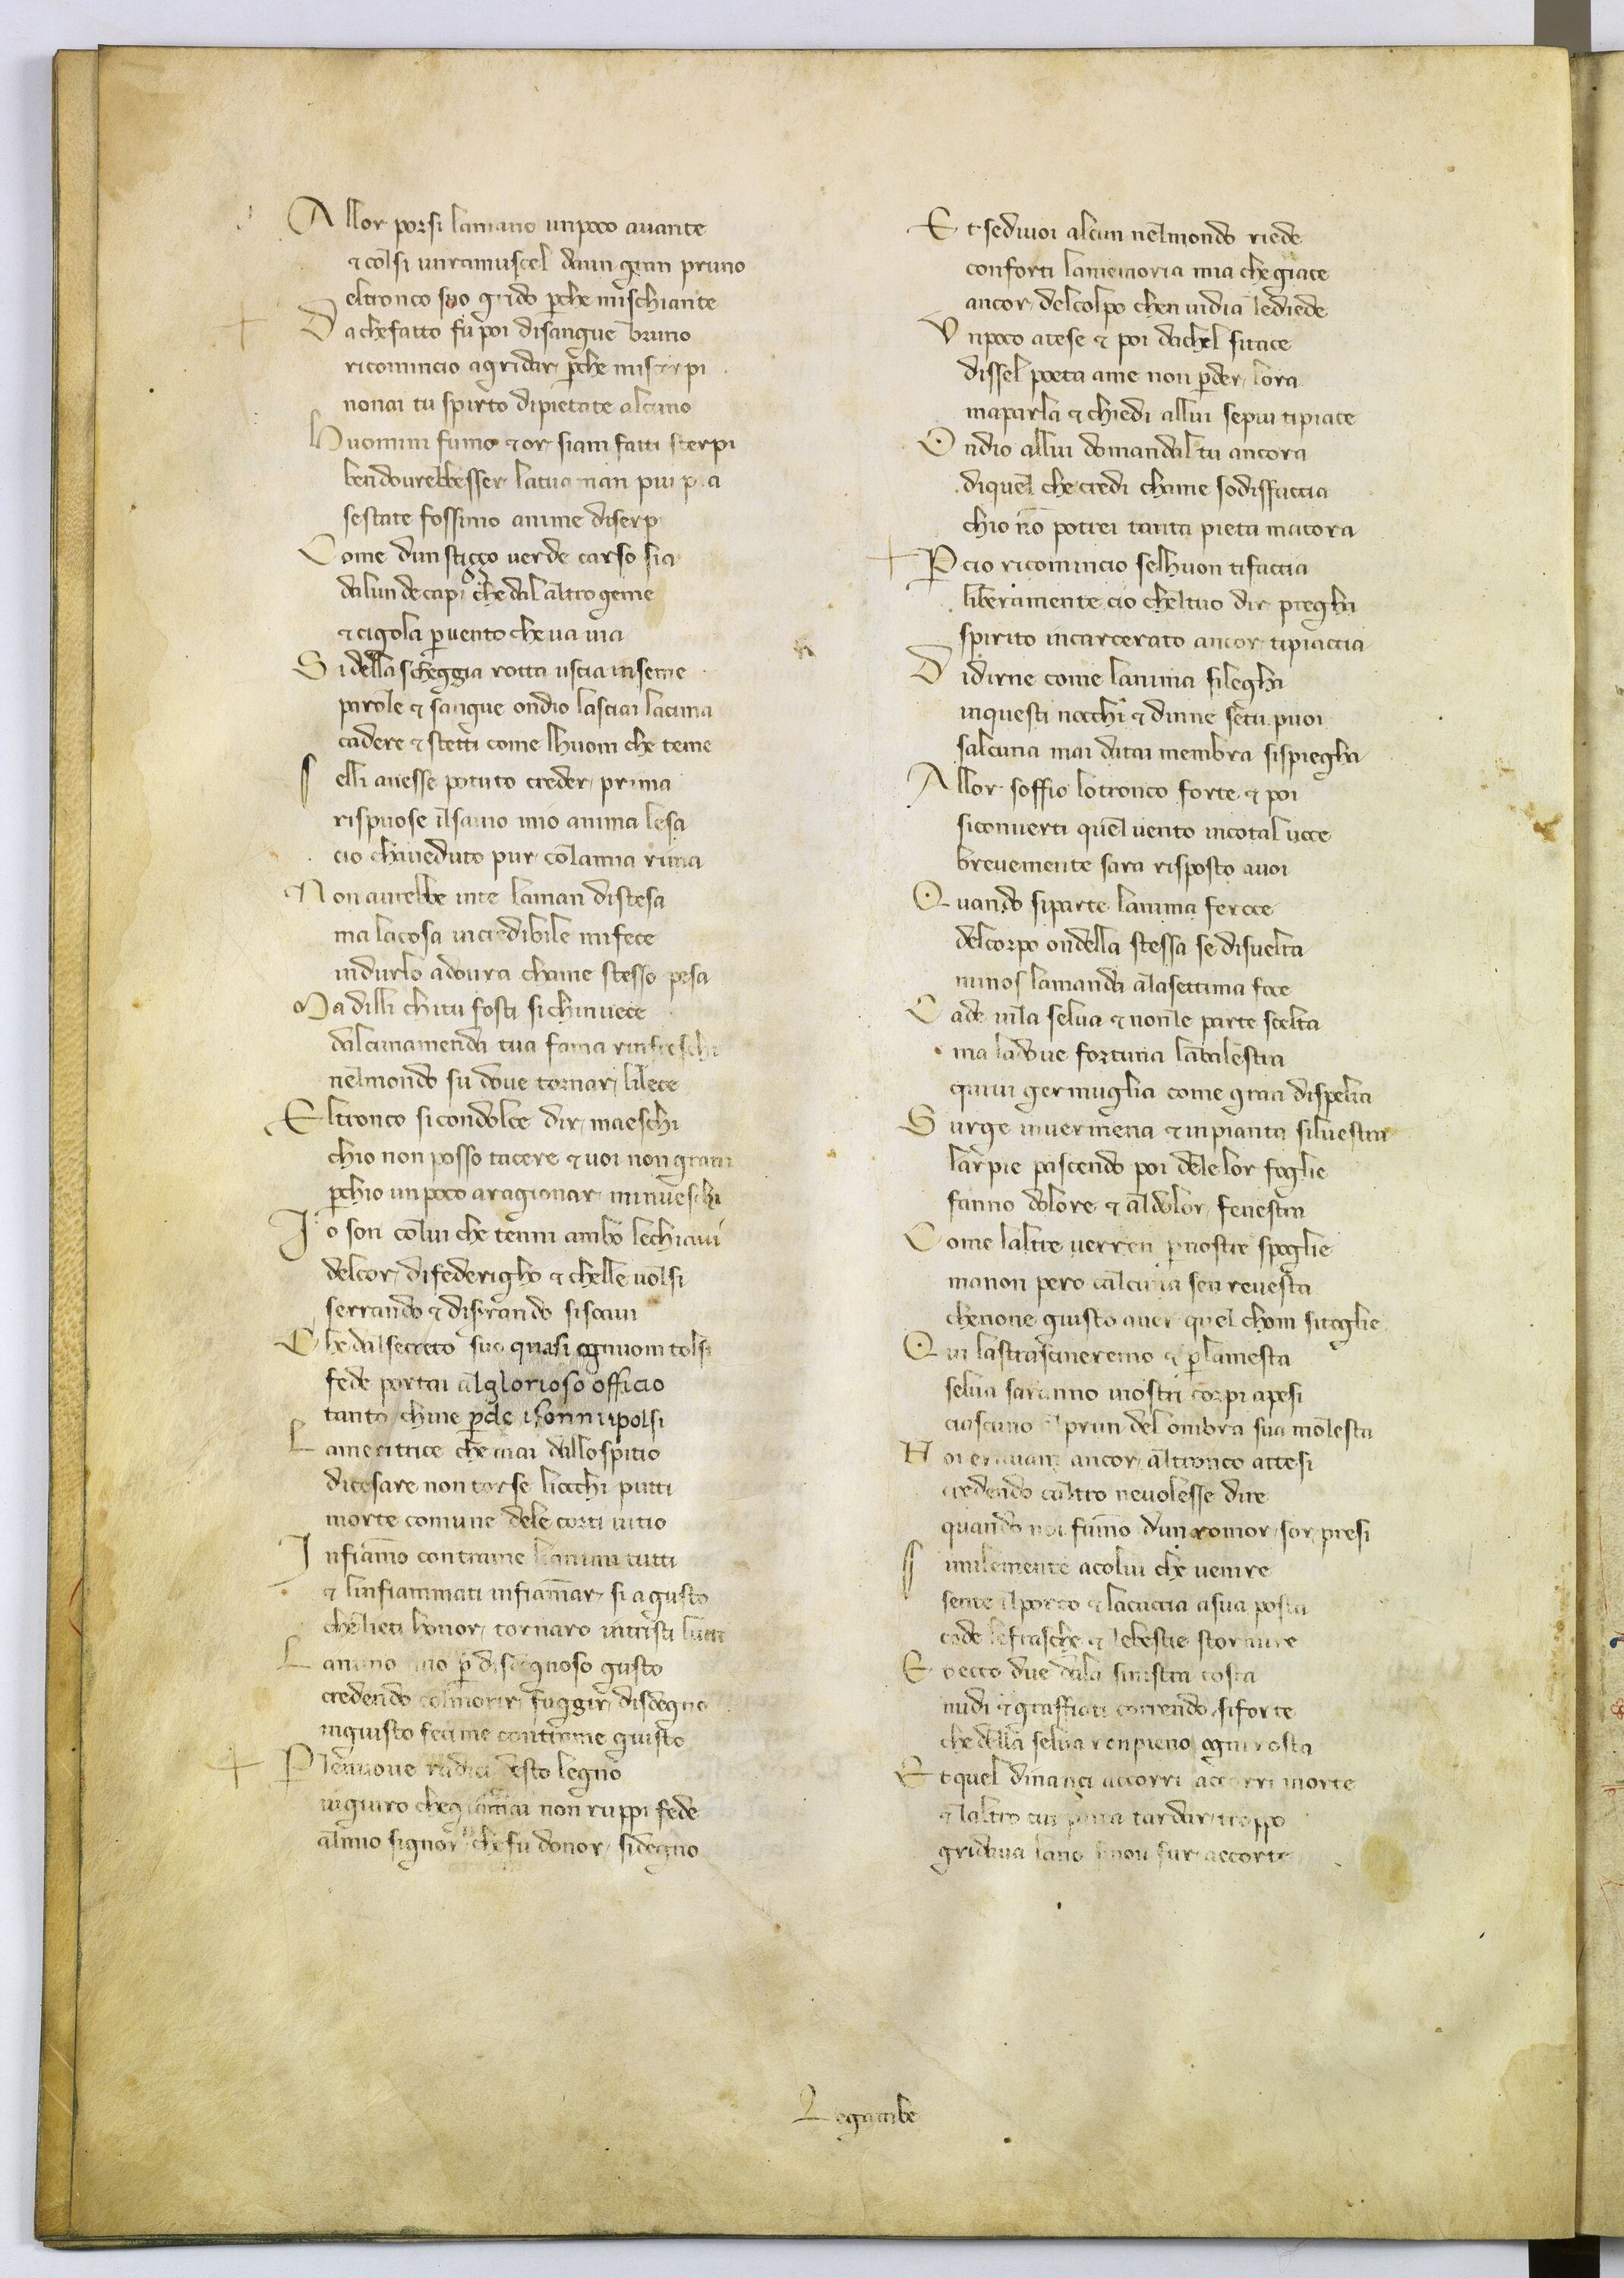 Allor porsi lamano unpoco auante
& colsi unramuscel daun gran pruno
eltronco suo grido p̄che mischiante
Dachefatto fu poi disangue bruno
ricomincio agridar p̄che mi
nonai tu spirto dipietate alcuno
Huomini fumo & or siam fatti sterpi
bendourebbesser latua man piu
sestate fossimo anime diserp
Come dun stiçço uerde carso sia
dalun decapi che dal altro geme
& cigola p̄uento che ua uia
Si della scheggia rotta uscia inseme
parole & sangue ondio lasciai lacima
cadere & stetti come lhuom che teme
Selli auesse potuto creder prima
rispuose ilsauio mio anima lesa
cio chaueduto pur colamia rima
Non aurebbe inte laman distesa
ma lacosa incredibile mifece
indurlo adoura chame stesso pesa
Ma dilli chitu fosti sichinuece
dalcunamenda tua fama rinfreschi
nelmondo su doue tornar lilece
Eltronco sicondolce dir maeschi
chio non posso tacere & uoi non
p̄chio unpoco aragionar minueschi
Io son colui che tenni ambo lechiaui
delcor difederigho & chelle uolsi
serrando & disrando sisoaui
Che dalsecreto suo quasi ognuom tolsi
fede portai alglorioso officio
tanto chine p̄de isonni ipolsi
Lameritrice che mai dallospitio
dicesare non torse liocchi putti
morte comune dele corti uitio
Infiam̄o contrame lanimi tutti
& linfiammati infiam̄ar si agusto
chelieti honor tornaro intristi lutti
Lanimo mio p̄ disdegnoso gusto
credendo colmorir fuggir disdegno
ingiusto fecime contrame giusto
P̄lenuoue radici desto legno
uigiuro chegiam̄ai non ruppi fede
almio signor che fu donor sidegno
Et sediuoi alcun nelmondo riede
conforti lamemoria mia che giace
ancor delcolpo chen uidia lediede
Unpoco atese & poi dachel sitace
dissel poeta ame non p̄der lora
maparla & chiedi allui sepiu tipiace
Ondio allui domandal tu ancora
diquel che credi chame sodisfaccia
chio nō potrei tanta pieta macora
P̄cio ricomincio selhuon tifaccia
liberamente cio cheltuo dir preghi
spirito incarcerato ancor tipiaccia
Didirne come lanima sileghi
inquesti nocchi & dinne setu puoi
salcuna mai datai membra sispieghi
Allor soffio lotronco forte & poi
siconuerti quel uento incotal uoce
breuemente sara risposto auoi
Quando siparte lanima feroce
delcorpo ondella stessa se disuelta
minos lamanda alasettima foce
Cade inla selua & nonle parte scelta
ma ladoue fortuna labalestra
quiui germuglia come gran dispelta
Surge inuermena & inpianta siluestra
larpie pascendo poi dele lor foglie
fanno dolore & aldolor fenestra
Come laltre uerren p̄nostre spoglie
manon pero calcuna sen reuesta
chenone giusto auer quel chom sitoglie
Qui lastrascineremo & p̄ lamesta
selua saranno inostri corpi apesi
ciascuno al prun del ombra sua molesta
Noi erauam ancor altronco attesi
credendo caltro neuolesse dire
quando noi fum̄o dun romor sor presi
Similemente acolui che uenire
sente ilporco & lacaccia asua posta
code lefrasche & lebestie stormire
Et ecco due dala sinistra costa
nudi & graffiati correndo siforte
che della selua ronpieno ogni rosta
Et quel dinançi accorri accorri morte
& laltro cui tardar troppo
gridaua lano sinon fur accorte
Legambe